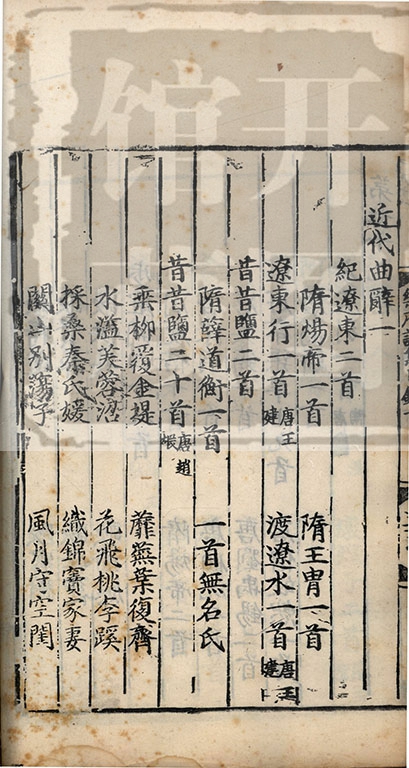 近代曲辭一
紀遼東二首
隋煬帝一首 隋王冑一首
遼東行一首唐王建 渡遼水一首唐王建
昔昔鹽二首
隋薛道衡一首 一首無名氏
昔昔鹽二十首唐趙嘏
垂柳覆金堤 蘼蕪葉復齊
水溢芙蓉沼 花飛桃李蹊
採桑秦氏媛 織錦竇家妻
關山別蕩子 風月守空閨
开
馆